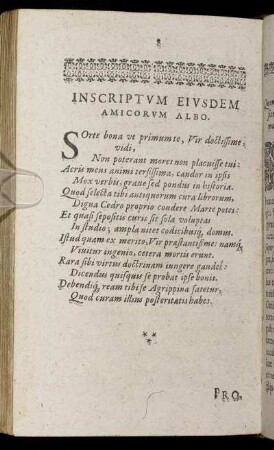 8
INSCRIPTVM EIVSDEM
AMICORVM ALBO.
SOrte bona vt primum te, Vir doctissime,
vidi,
Non poterant mores non placuisse tui:
Acris mens animi tersissima, candor in ipsis
Mox verbis, graue sed pondus in historia.
Quod selecta tibi antiquorum cura librorum,
Digna Cedro proprio condere Marte potes:
Et quasi sepositis curis sit sola voluptas
In studio; ampla nitet codicibusq, domus.
Istud quam ex merito, Vir præstantissime: namq,
Viuitur ingenio, cetera mortis erunt.
Rara sibi virtus doctrinam iungere gaudet:
Dicendus quisquis se probat ipse bonis.
Debendiq, ream tibi se Agrippina fatetur,
Quod curam illius posteritatis habes.
***
PRO.